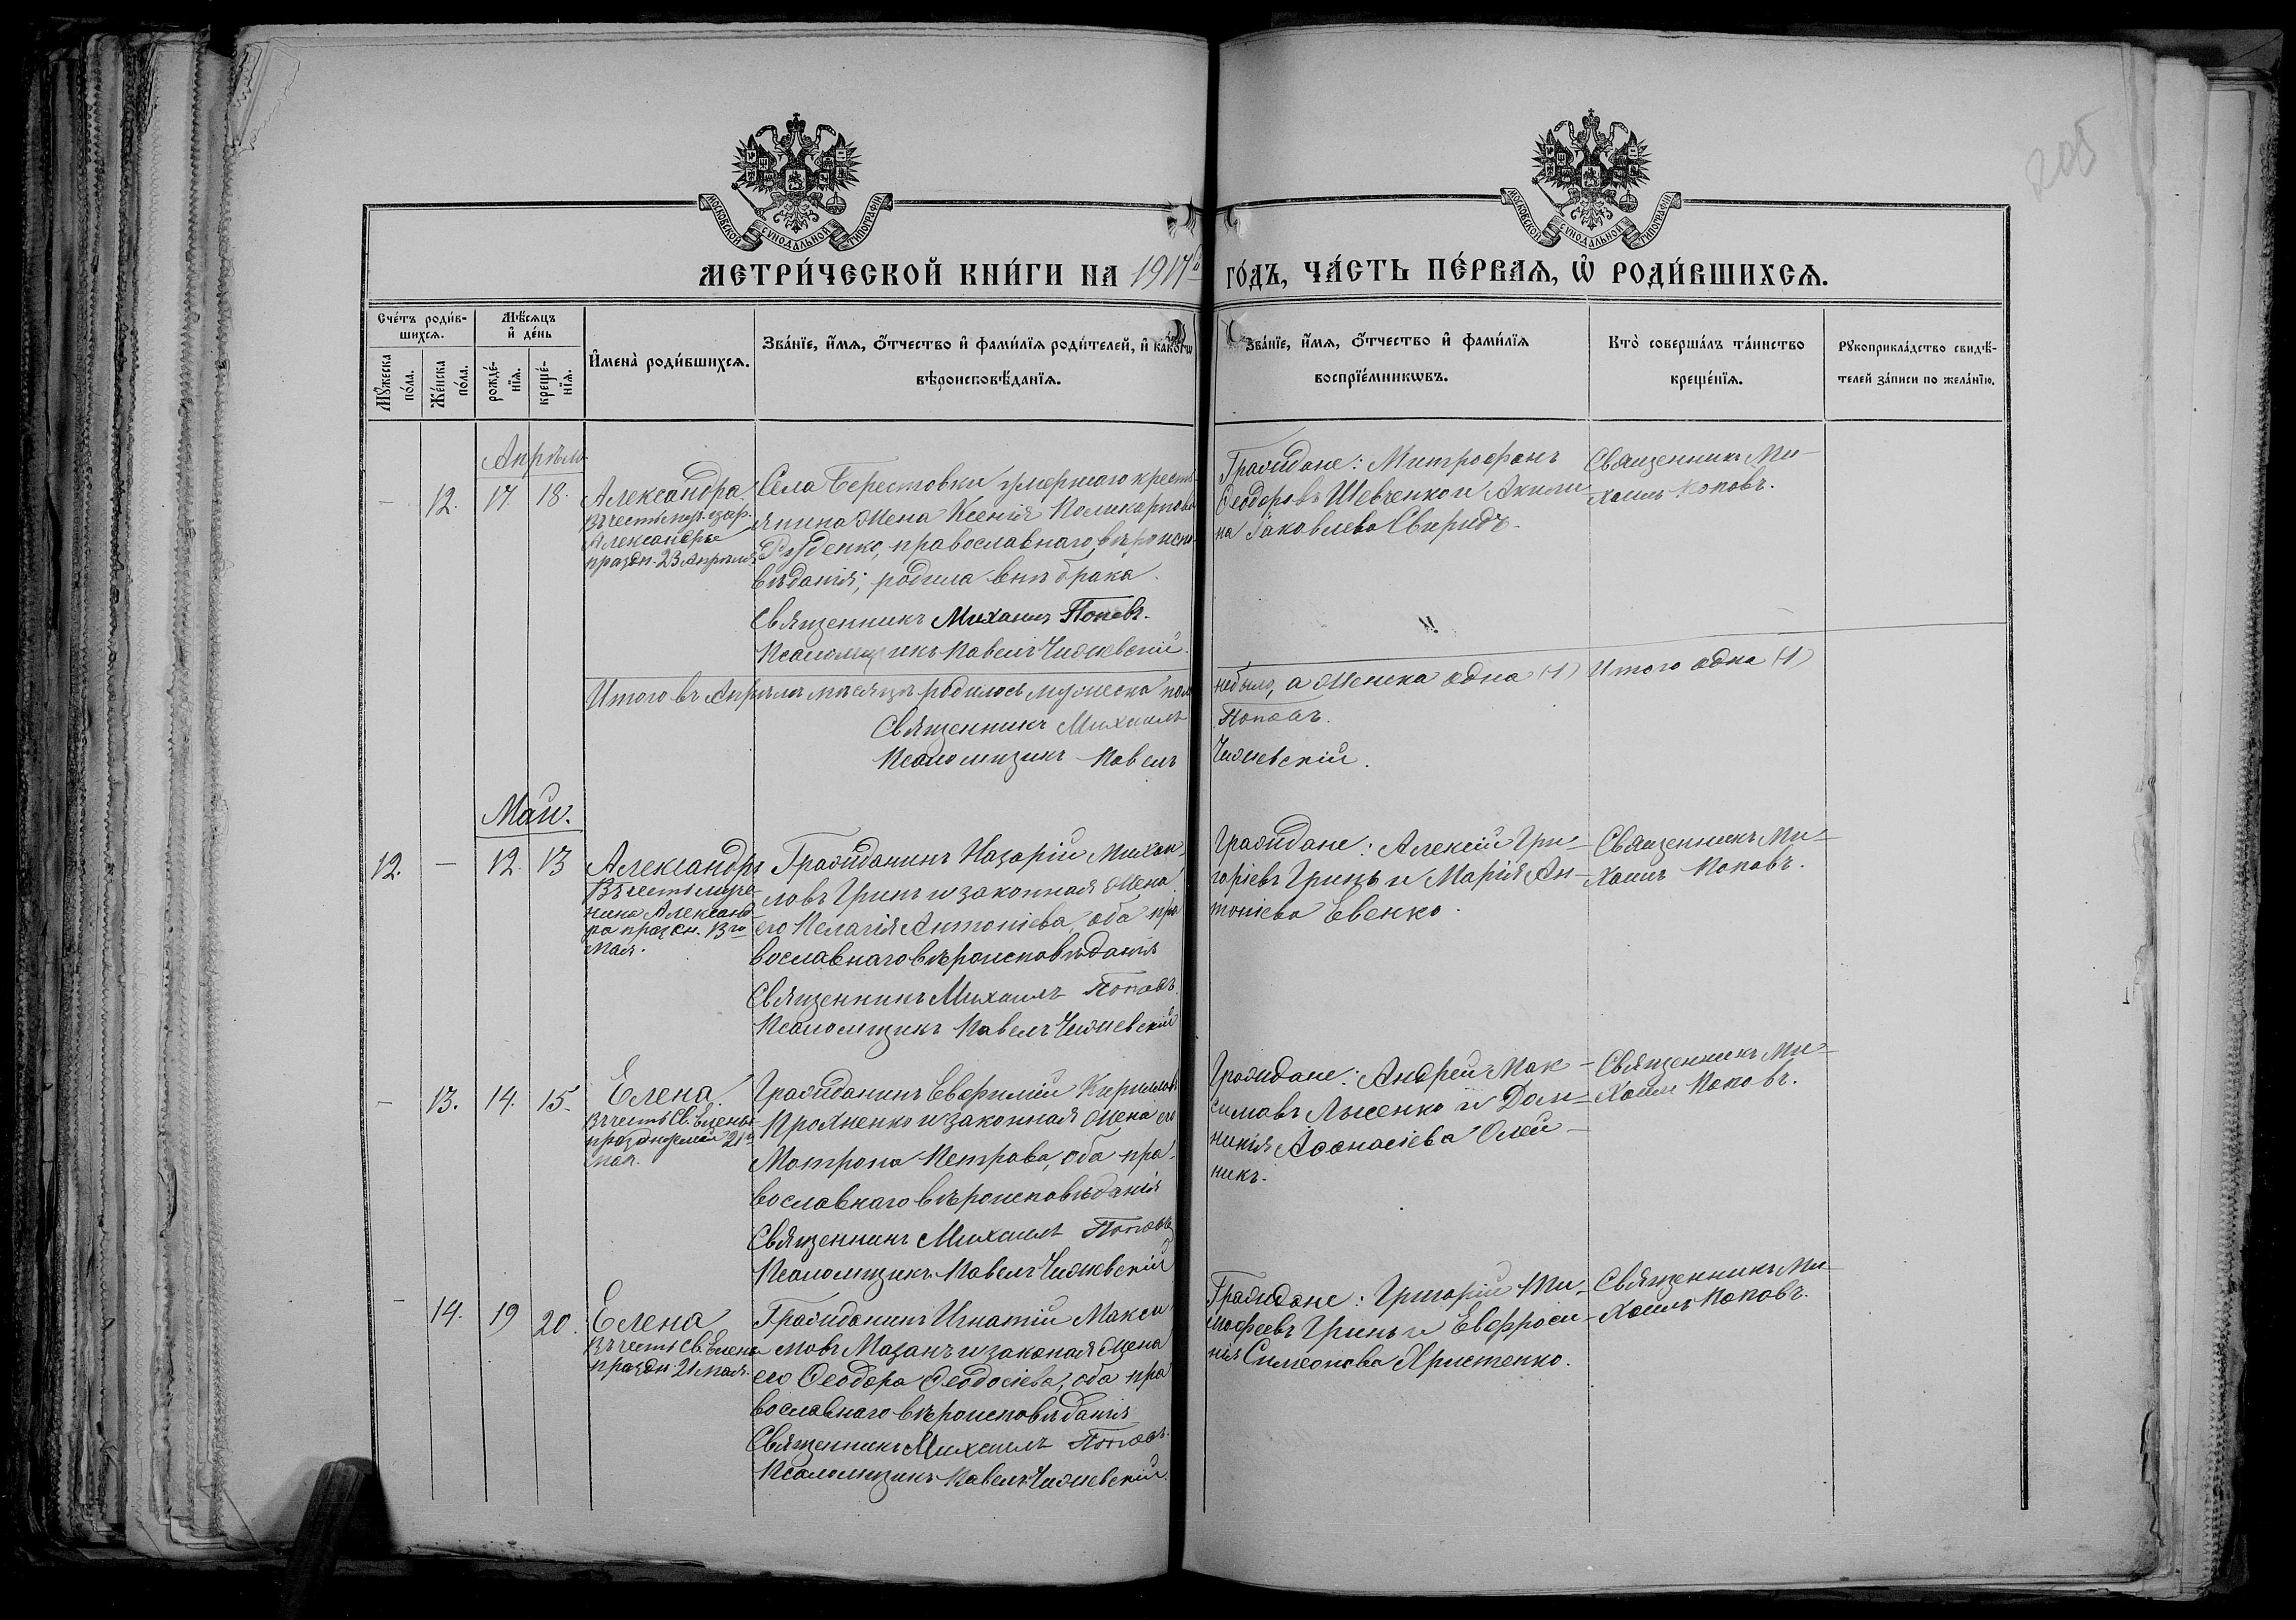 205
МОСКОВСКОЙ СѴНОДАЛЬНОЙ ТИПОГРАФІИ
МОСКОВСКОЙ СѴНОДАЛЬНОЙ ТИПОГРАФІИ
МЕТРИ́ЧЕСКОЙ КНИ́ГИ НА 1917й ГО́ДЪ, ЧА́СТЬ ПЕ́РВАЯ, Ѡ҆ РОДИ́ВШИХСЯ.
Сче́тъ роди́в-
шихся.
Мѣ́сяцъ
и҆ де́нь
Мꙋ́жеска
по́ла.
Же́нска
по́ла.
рожде́-
нїя.
креще́-
нїя.
И҆мена̀ роди́вшихся.
Зва́нїе, и҆́мя, ѻ҆́тчество и҆ фами́лїя роди́телей, и҆ како́гѡ
вѣроисповѣ́данїя.
Зва́нїе, и҆́мя, ѻ҆́тчество и҆ фами́лїя
воспрїе́мникѡвъ.
Кто̀ соверша́лъ та́инство
креще́нїя.
Рꙋкоприкла́дство свидѣ́-
телей за́писи по жела́нїю.
Апрѣль
- 12. 17. 18.
Александра
Въ честь муч. цар.
Александры
праздн. 23 Апрѣля
Села Берестовки умершаго кресть-
янина жена Ксенія Поликарпова
Руденко, православнаго вѣроиспо-
вѣданія; родила внѣ брака.
Священникъ Михаилъ Поповъ.
Псаломщикъ Павелъ Чижевскій.
Граждане: Митрофанъ
Ѳеодоровъ Шевченко и Акили-
на Іаковлева Свиридъ.
Священникъ Ми-
хаилъ Поповъ.
Итого въ Апрѣлѣ мѣсяцѣ родилось мужеска пола
не было, а женска одна (1) Итого одна (1)
Священникъ Михаилъ Поповъ.
Псаломщикъ Павелъ Чижевскій.
Май.
12. - 12. 13
Александръ
Въ честь муче-
ника Александ-
ра праздн. 13го
Мая.
Гражданинъ Назарій Михаи-
ловъ Гринь и законная жена
его Пелагія Антоніева, оба пра
вославнаго вѣроисповѣданія
Священникъ Михаилъ Поповъ.
Псаломщикъ Павелъ Чижевскій
Граждане: Алексій Гри-
горіевъ Гринь и Марія Ан-
тоніева Евенко.
Священникъ Ми-
хаилъ Поповъ.
- 13. 14. 15.
Елена.
Въ честь Св. Елены
празднуемой 21го
мая.
Гражданинъ Евфимій Кирилловъ
и законная жена его
Матрона Петрова, оба пра-
вославнаго вѣроисповѣданія
Священникъ Михаилъ Поповъ
Псаломщикъ Павелъ Чижевскій
Граждане: Андрей Мак-
симовъ Лысенко и Дом-
никія Аѳанасіева Олей-
никъ.
Священникъ Ми-
хаилъ Поповъ.
- 14. 19 20.
Елена
Въ честь Св. Елены
праздн. 21 мая.
Гражданинъ Игнатій Макси
мовъ Мазанъ и законая жена
его Ѳеодора Ѳеодосіева, оба пра
вославнаго вѣроисповѣданія
Священникъ Михаилъ Поповъ.
Псаломщикъ Павелъ Чижевскій.
Граждане: Григорій Ти-
моѳеевъ Гринь и Евфроси-
нія Симеонова Христенко.
Священникъ Ми-
хаилъ Поповъ.